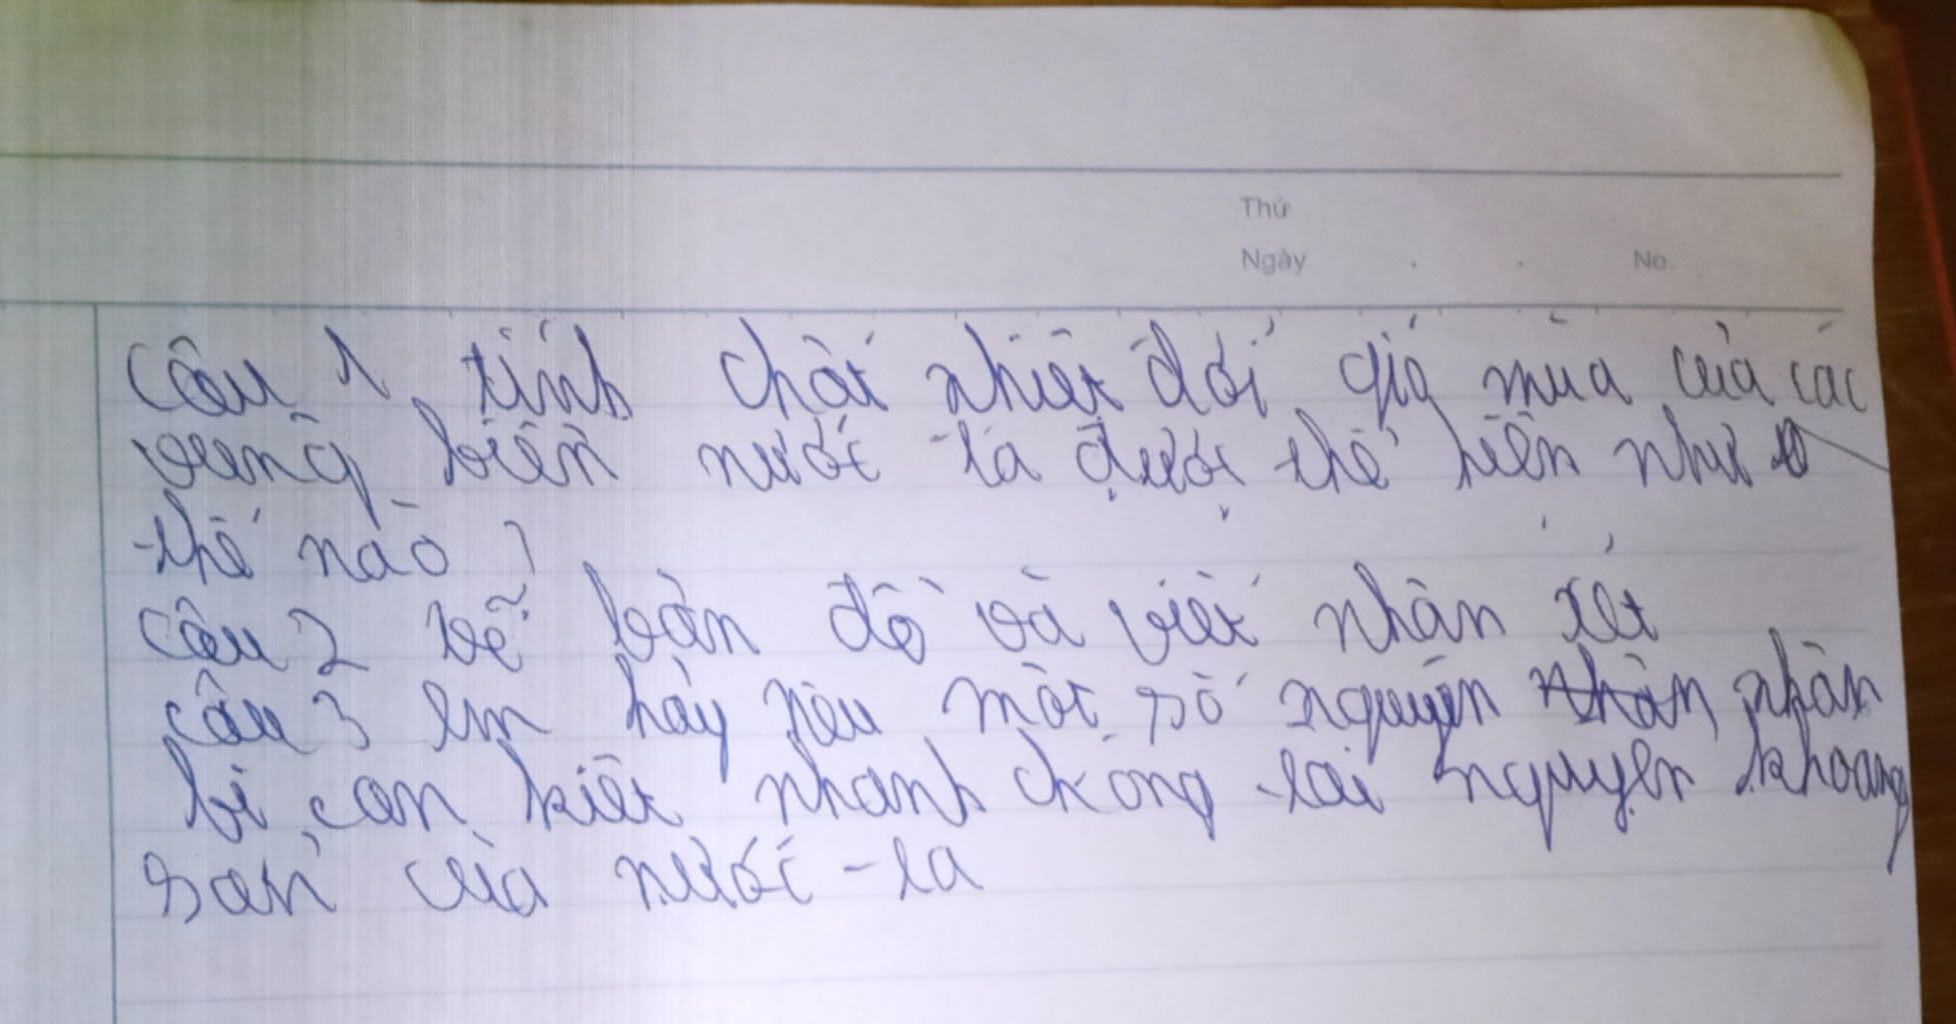 Thứ
Ngày . . No.
câu 1 tính chất nhiệt đới gió mùa của các
vùng biển nước ta được thể hiện như
thế nào ?
câu 2 vẽ bản đồ và viết nhận xét
câu 3 em hãy nêu một số nguyên nhân
bị cạn kiệt nhanh chóng tài nguyên khoáng
sản của nước ta